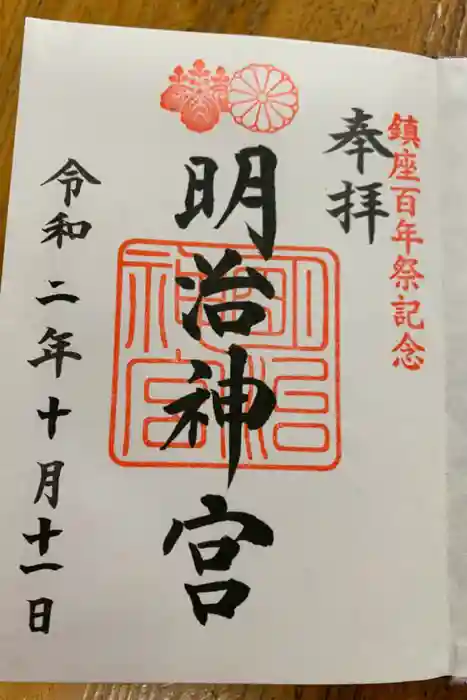 鎮座百年祭記念
奉拝
明治神宮
明治神宮
令和二年十月十一日